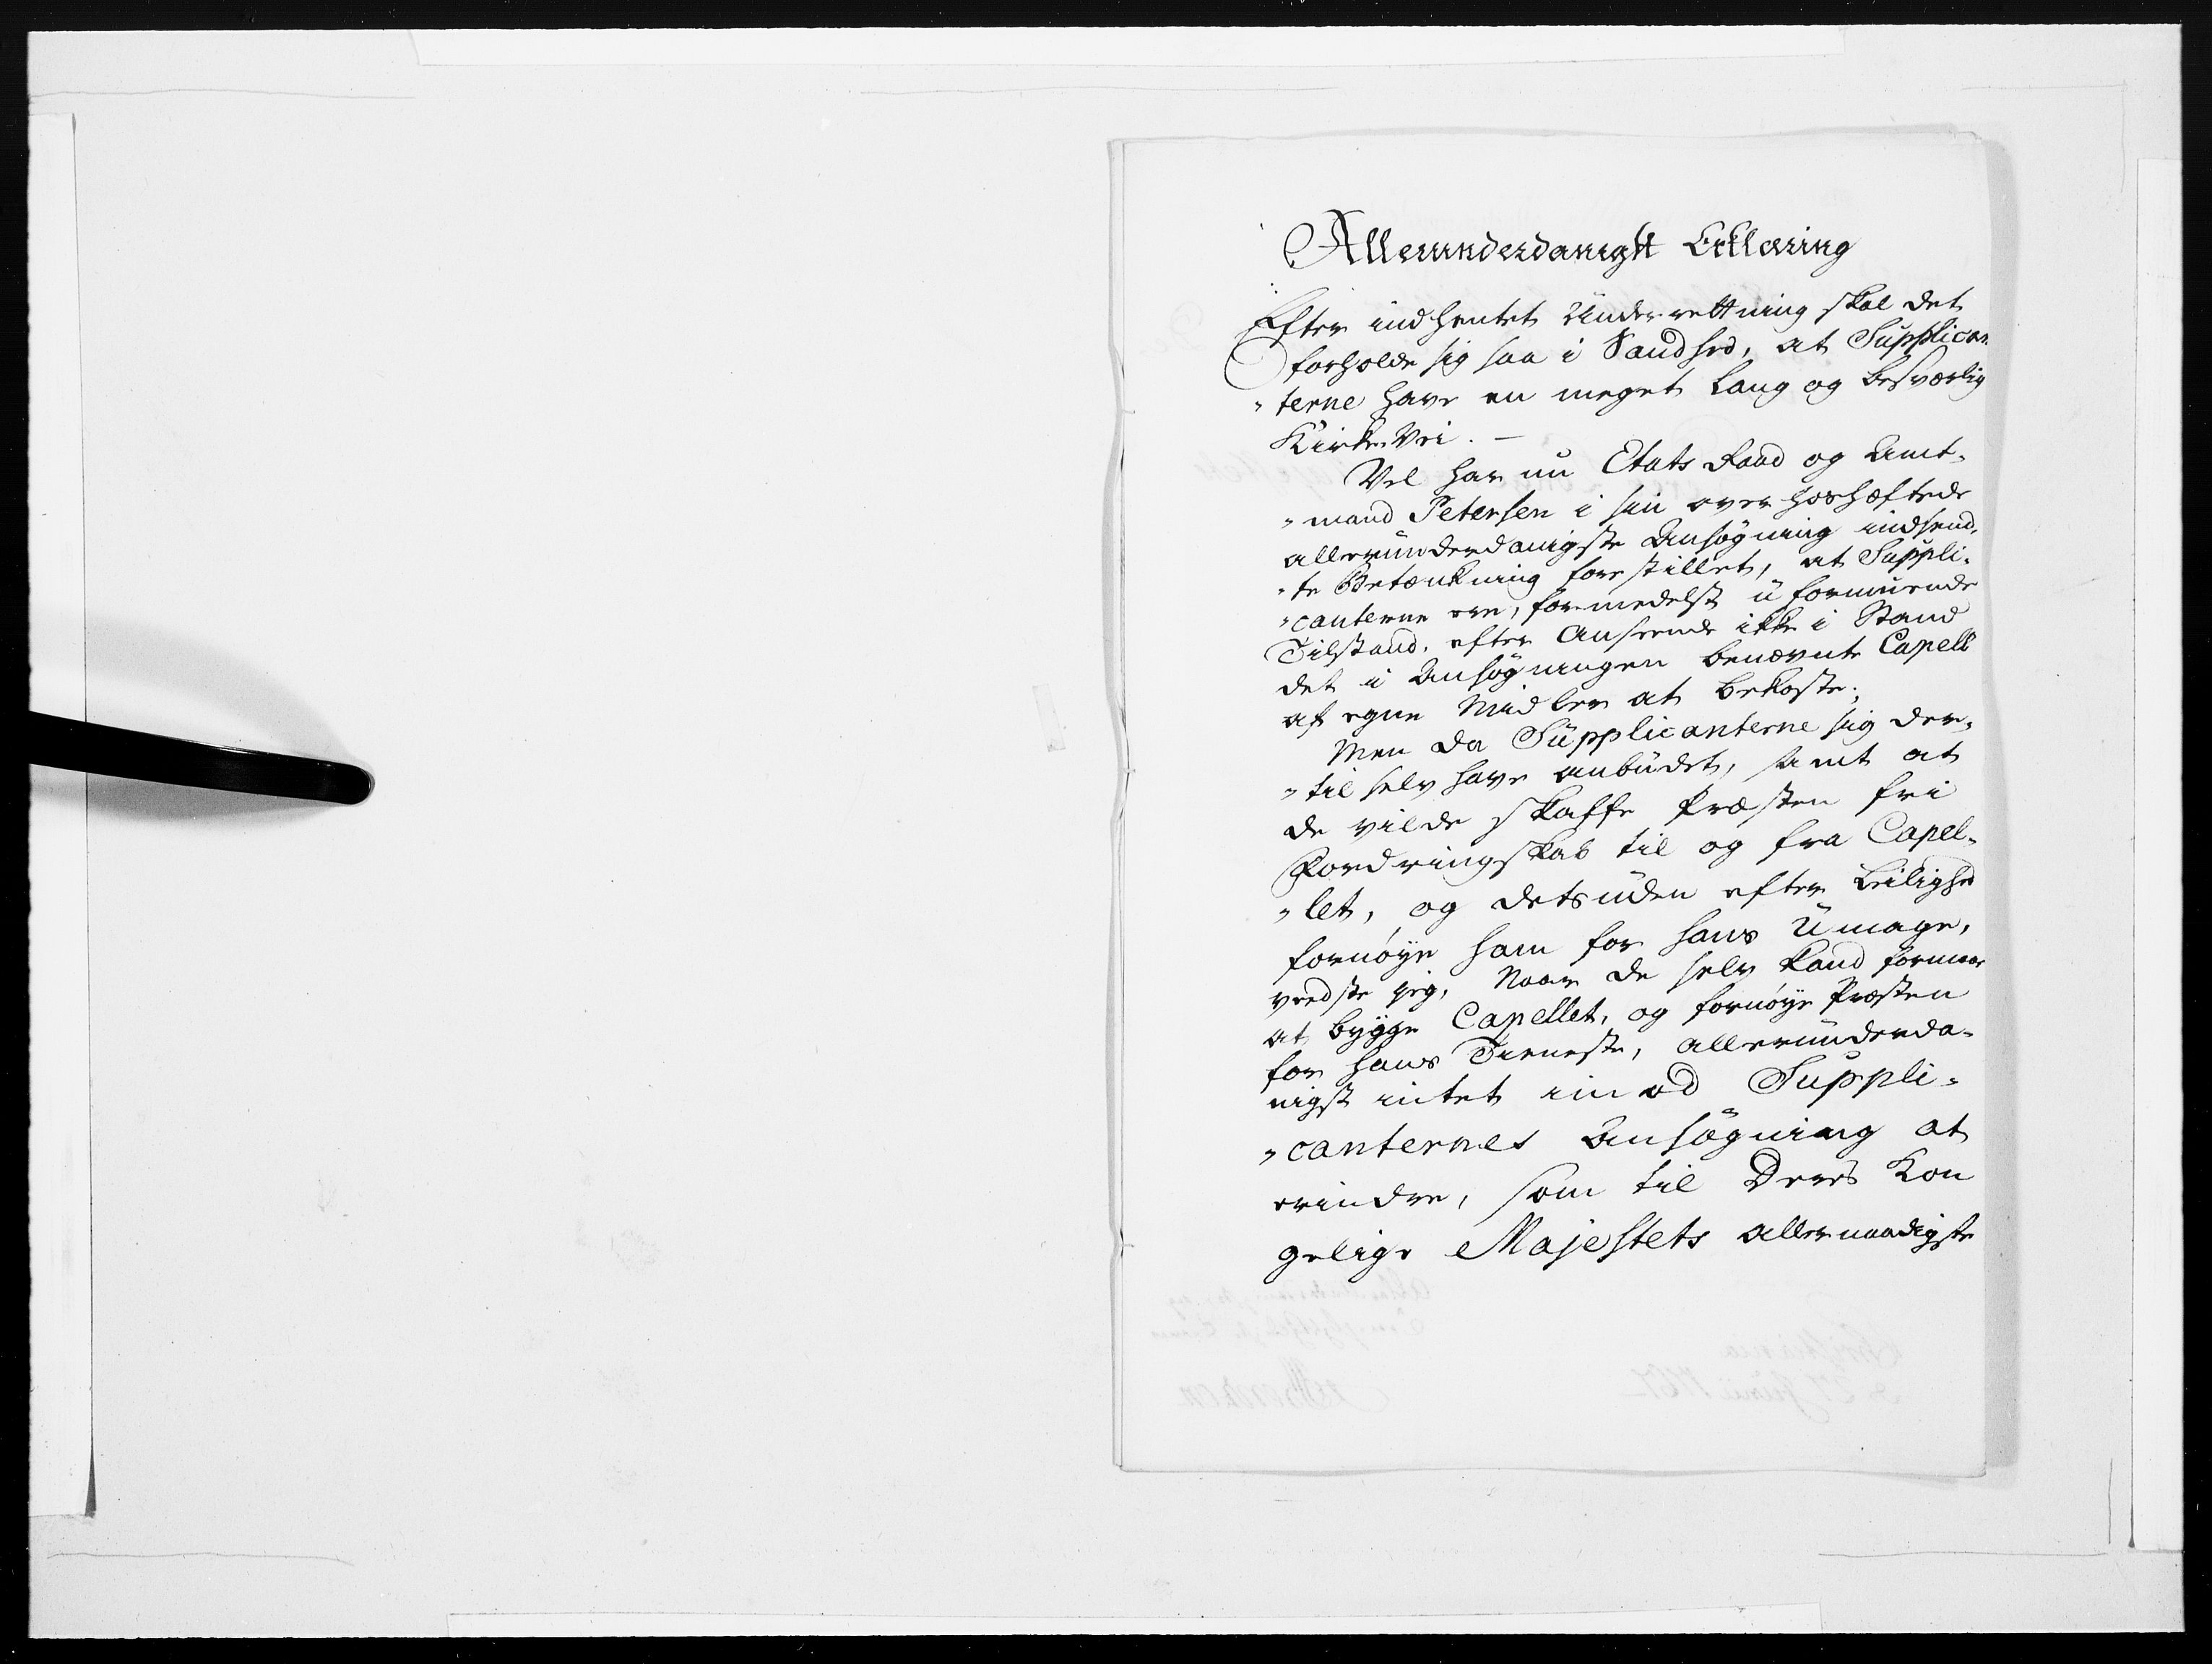 Allerunderdanigst Erklæring
Efter indhentet Underrettning skal det
forholde sig saa i Sandhed, at Supplican
"terne have en meget lang og besværlig
Kirke Vei. —
Vel har nu Etats Raad og Amt-
"mand Petersen i sin over hoshæftede
allerunderdanigste Ansøgning indsend-
"te Betænkning forestillet, at Suppli-
"canterne ere, formedelst uformuende
Tilstand, efter Anseende ikke i Stand
det i Ansøgningen benævnte Capell
af egne Midler at bekoste;
Men da Supplicanterne sig der-
"til selv have anbudet, samt at
de vilde skaffe Præsten fri
Fordringskab til og fra Capel-
"let, og desuden efter Leilighed
fornøye ham for hans Umage,
veedste jeg, Naar de selv kand formaae
at bygge Capellet, og fornøye Præsten
for hans Tieneste, allerunderda-
nigst intet imod Suppli-
"canternes Ansøgning at
erindre, som til Deres Kon
gelige Majestets allernaadigste